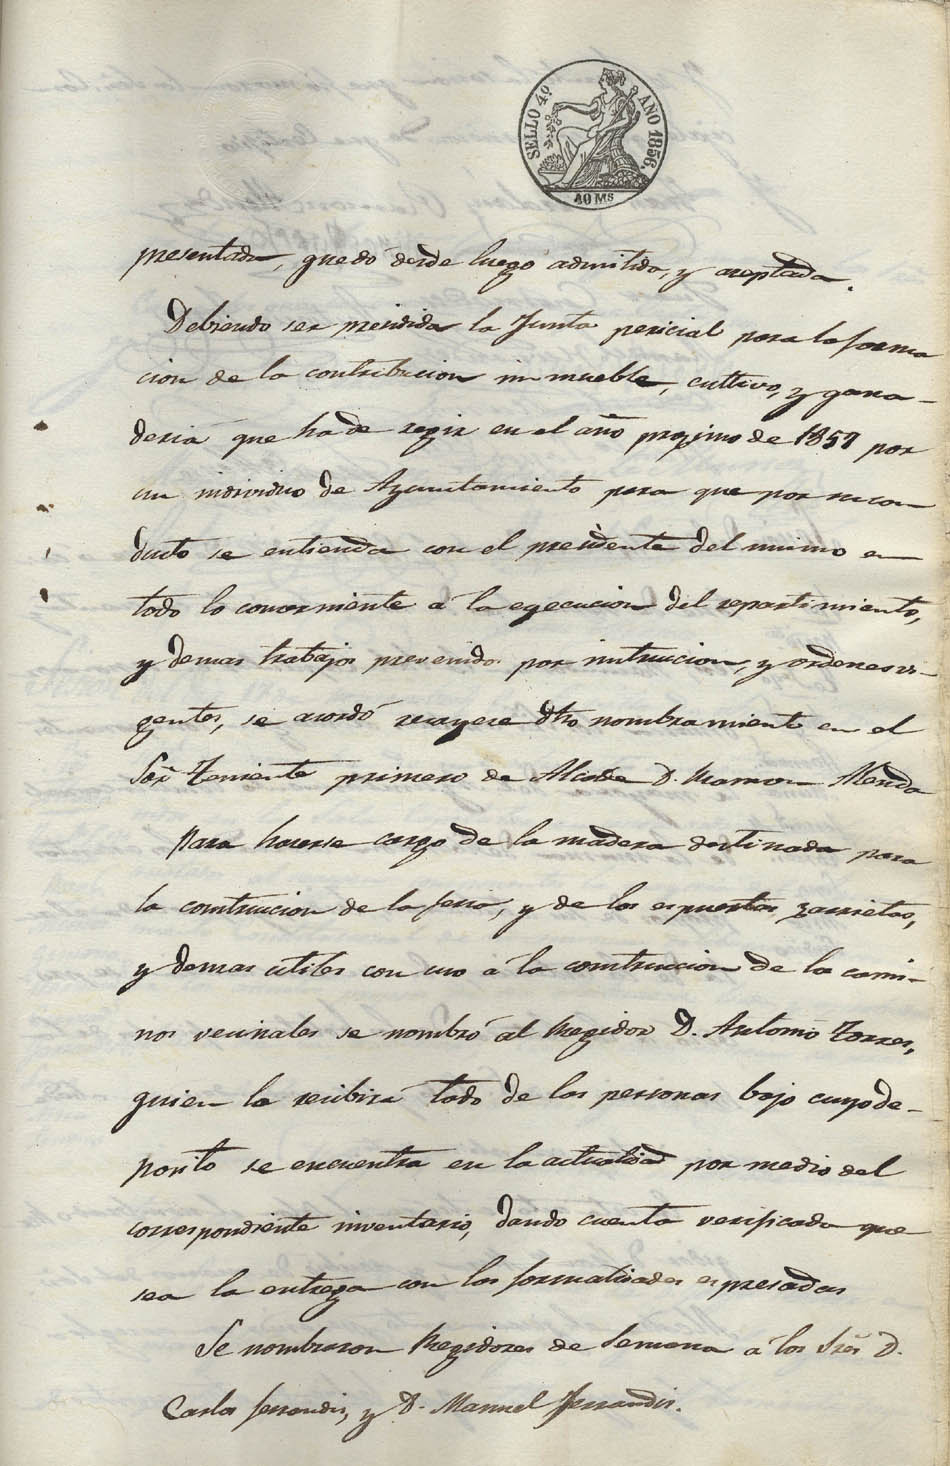 SELLO 4º AÑO 1856.
40 Ms
presentada, quedó desde luego admitida, y aceptada.
Debiendo ser precidida la Junta pericial para la forma
cion de la contribucion inmueble, cultivo, y gana-
deria que ha de regir en el año proximo de 1857 por
un individuo de Ayuntamiento para que por su con
ducto se entienda con el presidente del mismo en
todo lo concerniente á la egecucion del repartimiento,
y demas trabajos prevenidos por instruccion, y ordenes vi-
gentes, se acordó recayese dho nombramiento en el
Sor Teniente primero de Alcalde D. Ramon Menda
Para hacerse cargo de la madera destinada para
la construccion de la feria, y de los espuertas, zarrietas,
y demas utiles con uso á la construccion de los cami-
nos vecinales se nombró al Regidor D. Antonio Torres,
quien lo recibirá todo de las personas bajo cuyo de-
posito se encuentra en la actualidad por medio del
correspondiente inventario, dando cuenta verificada que
sea la entrega con las formalidades espresadas
Se nombraron Regidores de Semana á los Sres D.
Carlos Ferrandis, y D. Manuel Ferrandis.